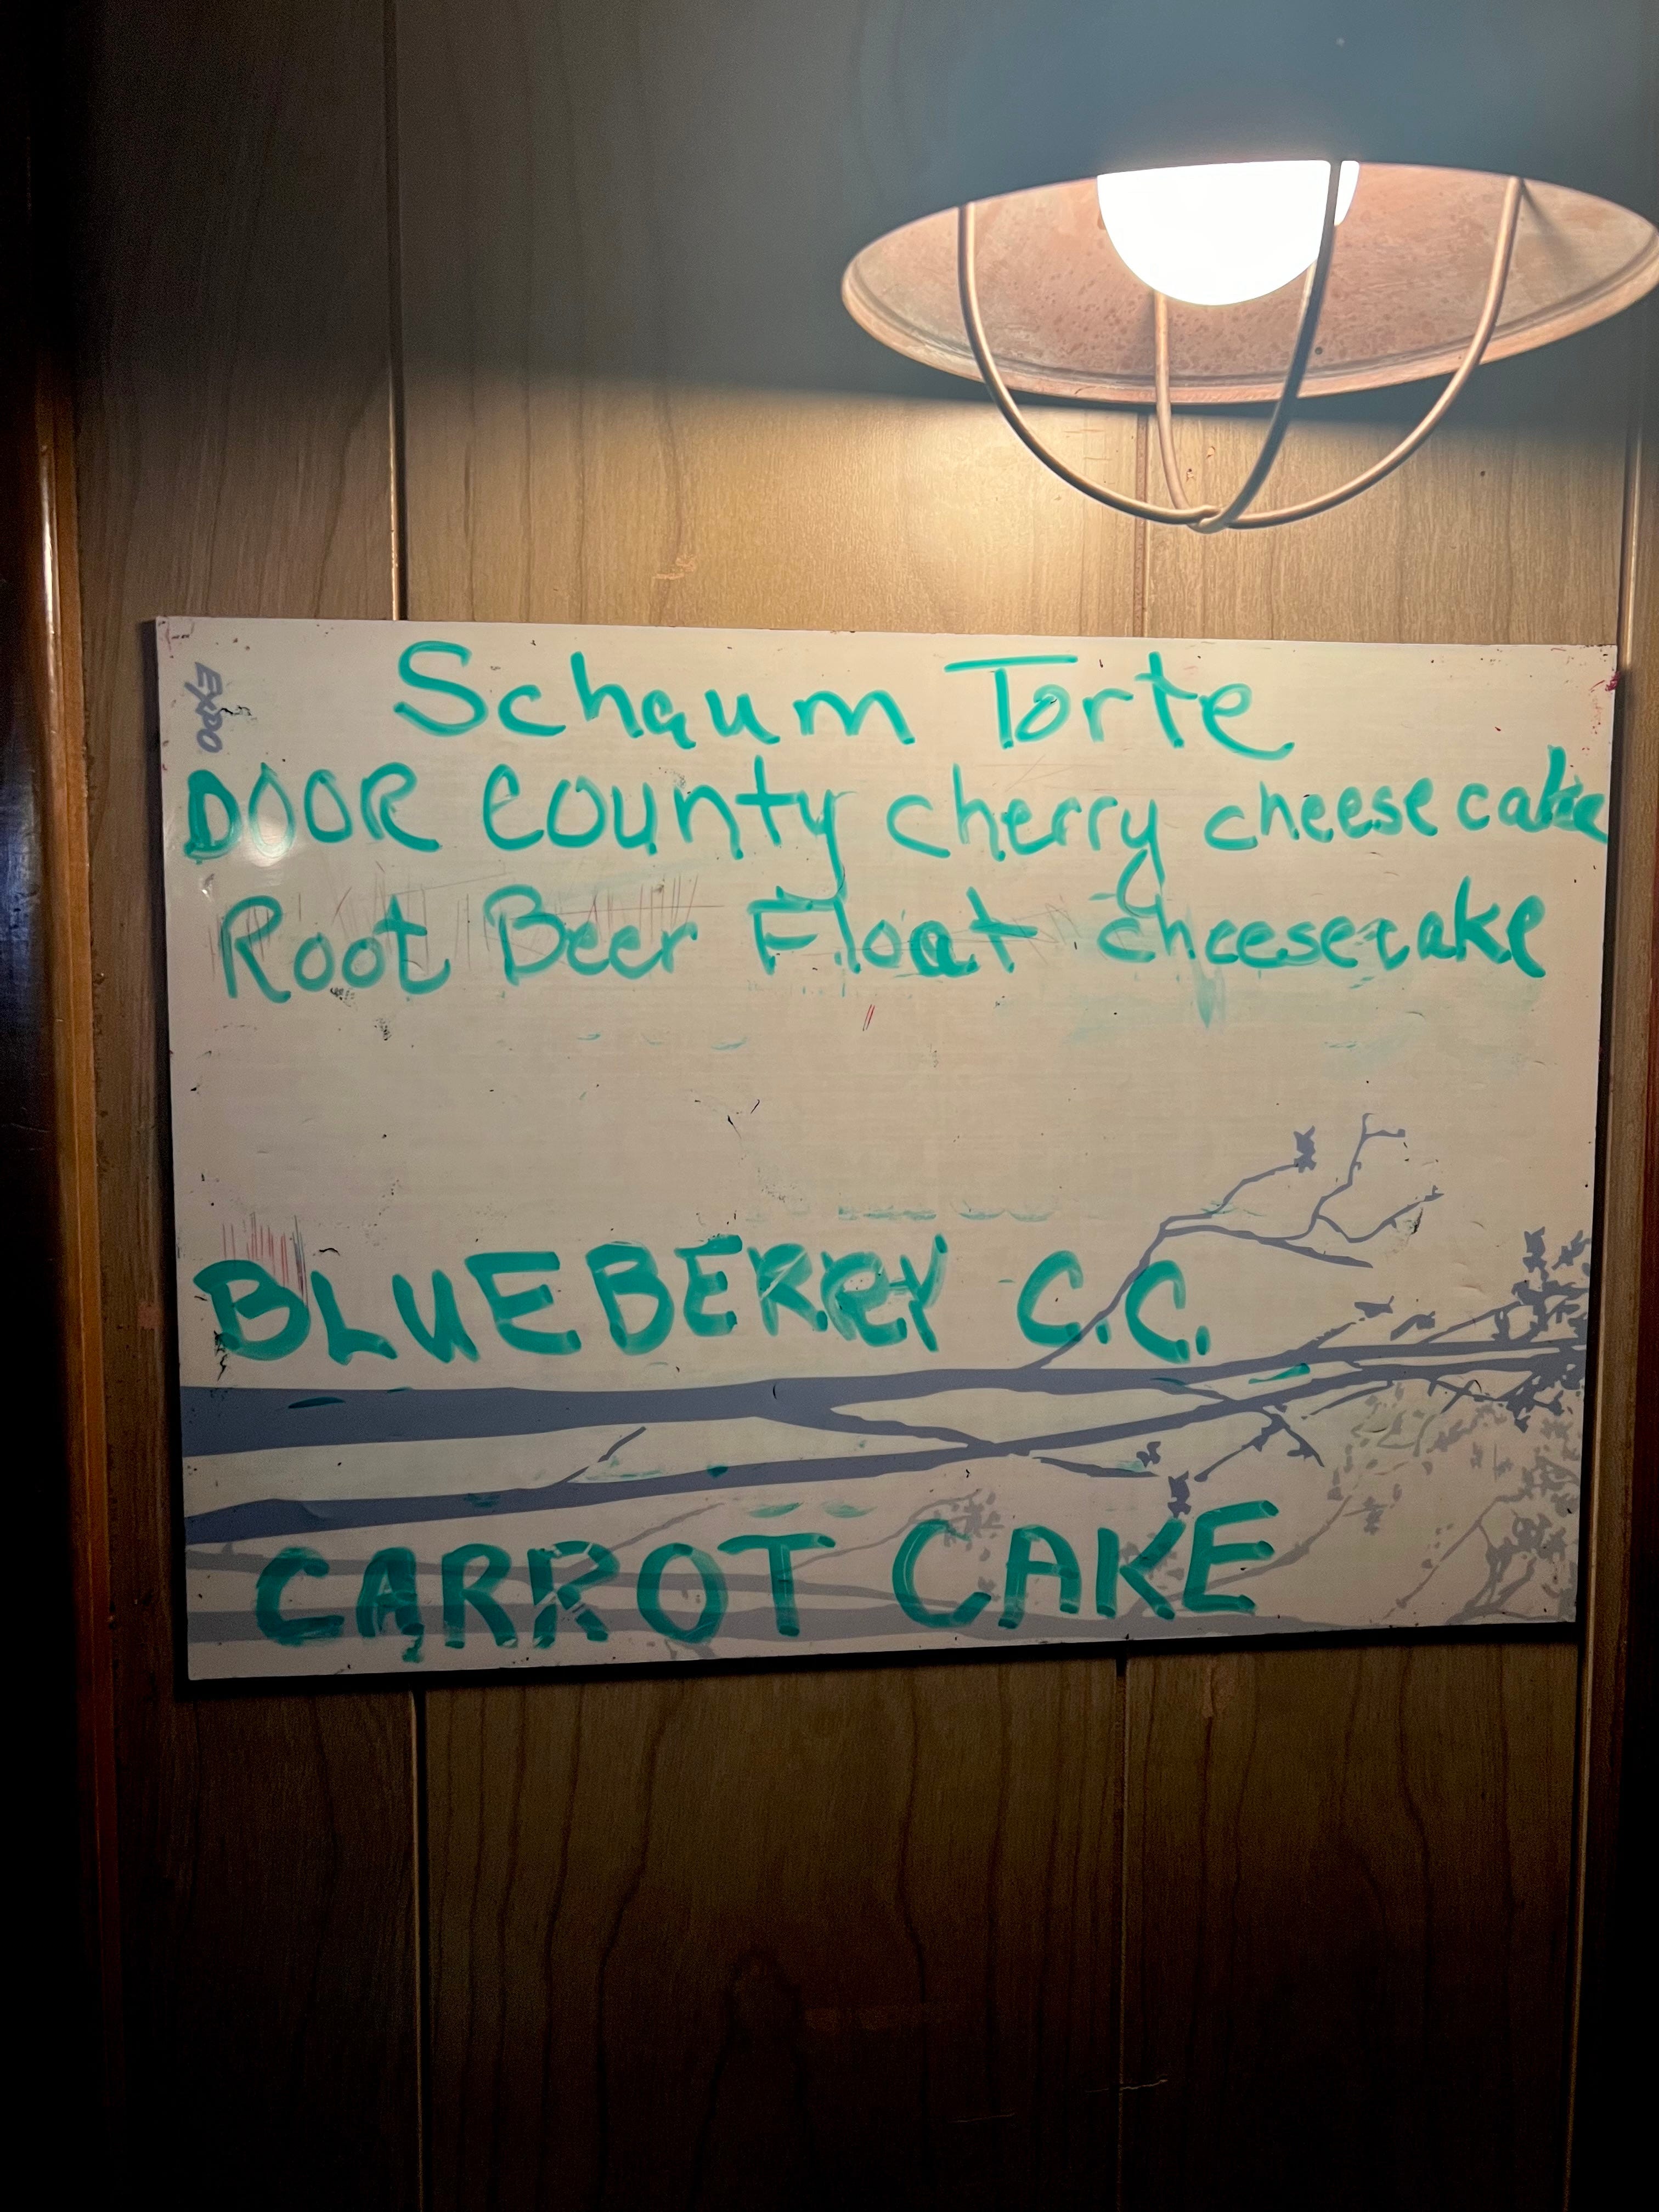 EXPO
Schaum Torte
DOOR COUNTY cherry cheese cake
Root Beer Float cheesecake
BLUEBERRY C.C.
CARROT CAKE